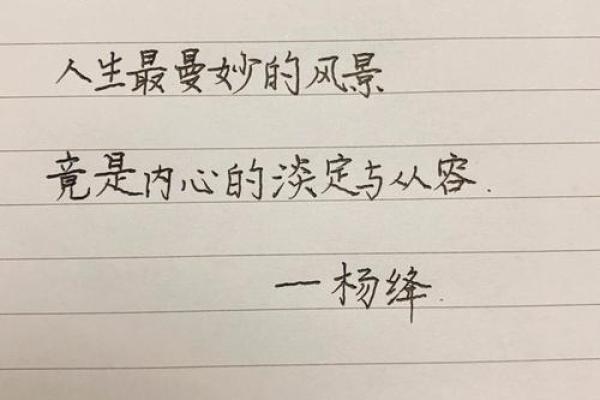 人生最曼妙的风景
竟是内心的淡定与从容.
—杨绛.